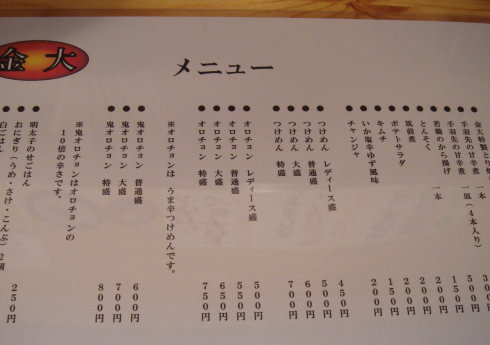 金大
メニュー
● 金大特製とり
● 手羽先の甘辛煮 一皿(4本入り)
● 手羽先の甘辛煮 一本
● 若鶏のから揚げ
● とんそく
● 筑前煮
● ポテトサラダ
● キムチ
● いか塩辛ゆず風味
● チャンジャ 200円
● つけめん レディース盛 450円
● つけめん 普通盛 500円
● つけめん 大盛 600円
● つけめん 特盛 700円
● オロチョン レディース盛 500円
● オロチョン 普通盛 550円
● オロチョン 大盛 650円
● オロチョン 特盛 750円
※オロチョンは、うま辛つけめんです。
● 鬼オロチョン 普通盛 600円
● 鬼オロチョン 大盛 700円
● 鬼オロチョン 特盛 800円
※鬼オロチョンはオロチョンの
10倍の辛さです。
● 明太子のせごはん
● おにぎり(うめ・さけ・こんぶ)2個 250円
● 白ごはん